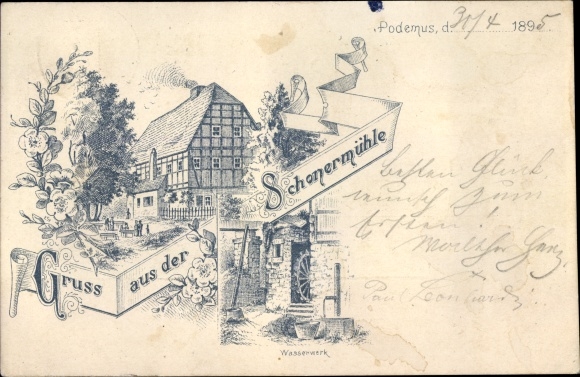 Podemus, d. 30/4 1895
Gruss aus der
Schonermühle
besten Glück
wunsch zum
Ersten!
Walther Ganz
Paul Leonhardi
Wasserwerk